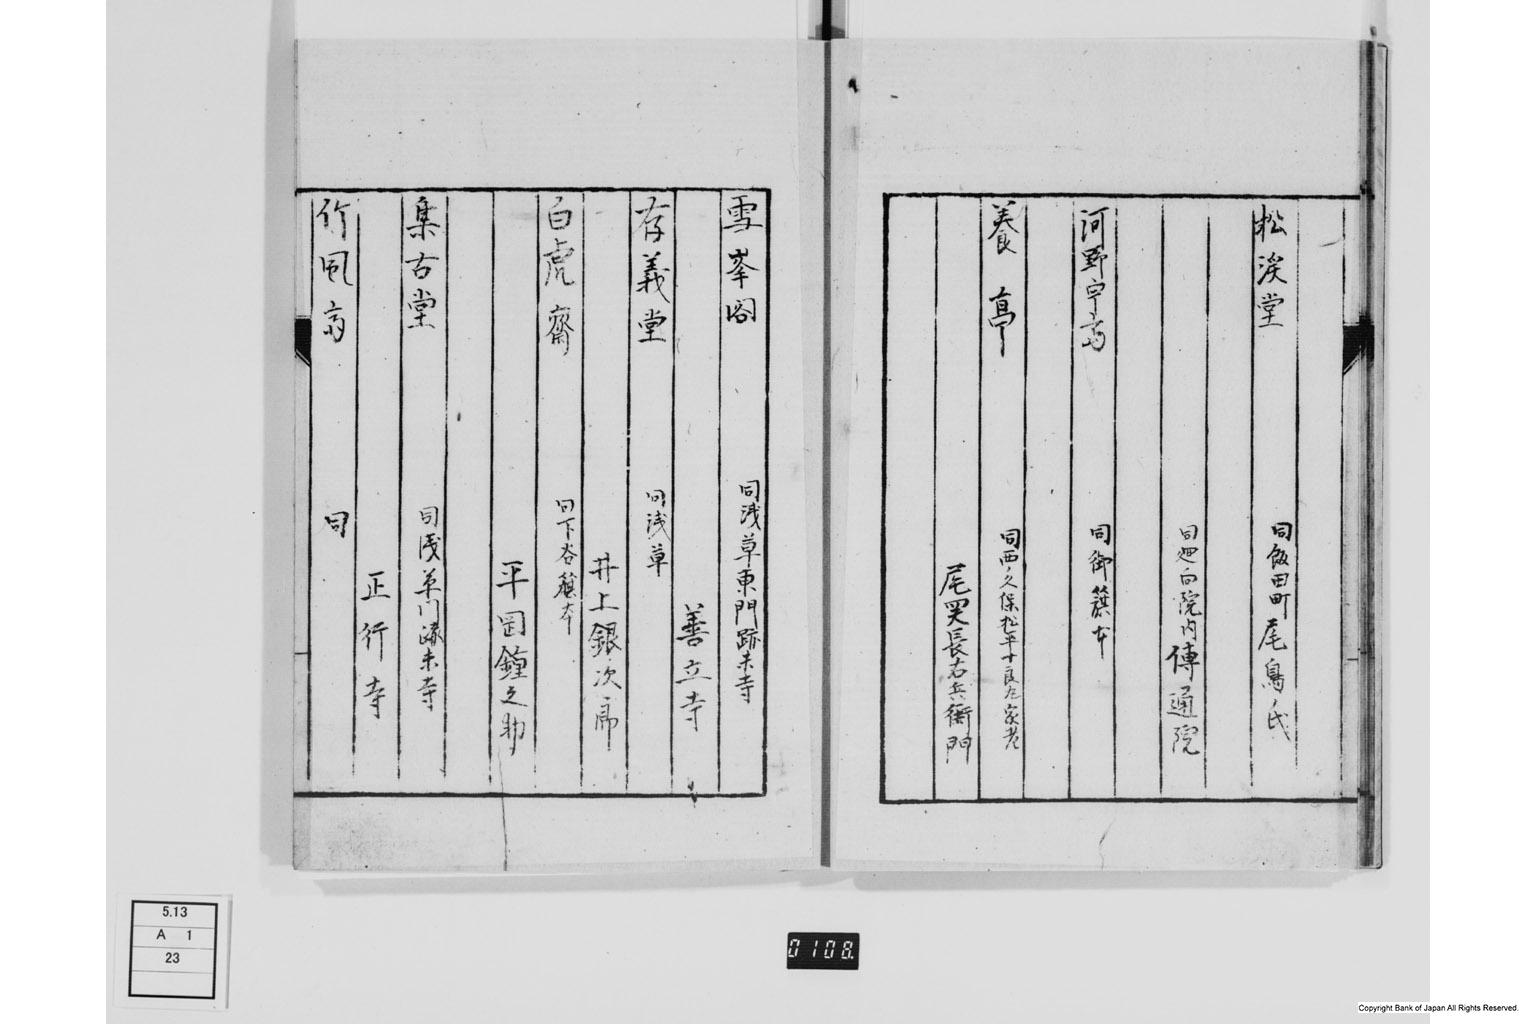 松涙堂
同飯田町 尾鳥氏
同廻向院内 傳通院
河野宇斎
同御籏本
養亭
同西ノ久保松平十良左家老
尾関長右兵衛門
雪峯閣
同浅草東門跡末寺
善立寺
存義堂
同浅草
井上銀次席
白虎齋
同下谷籏本
平岡鐘之助
集古堂
同浅草門跡末寺
正行寺
竹風斎
同
5.13
A 1
23
0108.
Copyright Bank of Japan All Rights Reserved.